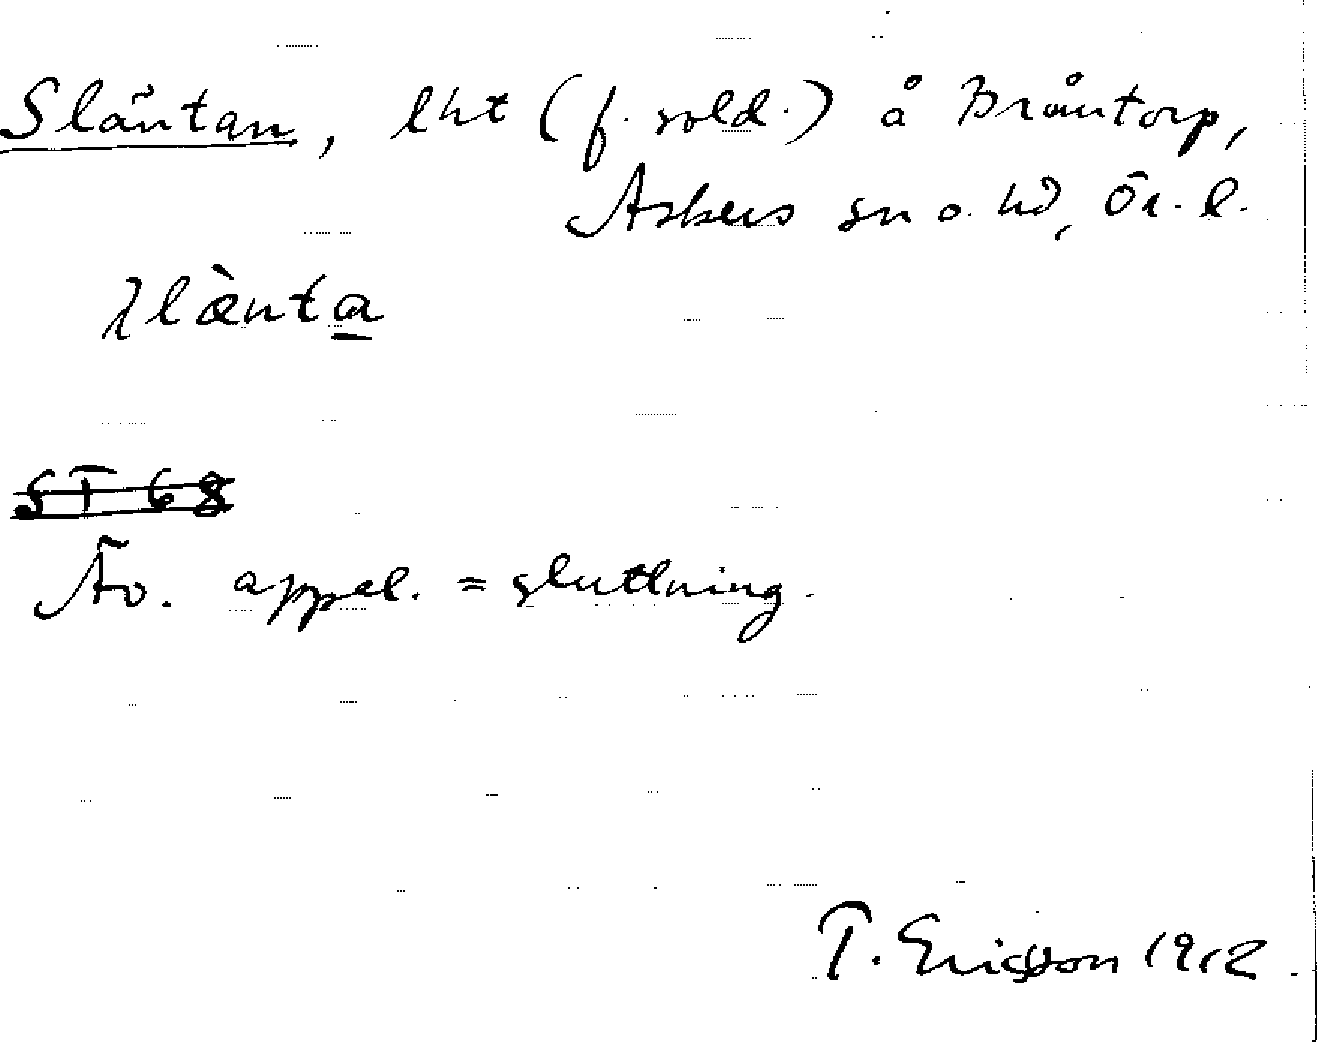 Släntan, lht (f. sold.) å Bråntorp,
Askers sn o. hd, Ör. l.
slæ̀nta
ST 68
Äv. appel. = sluttning.
T. Ericsson 1912.